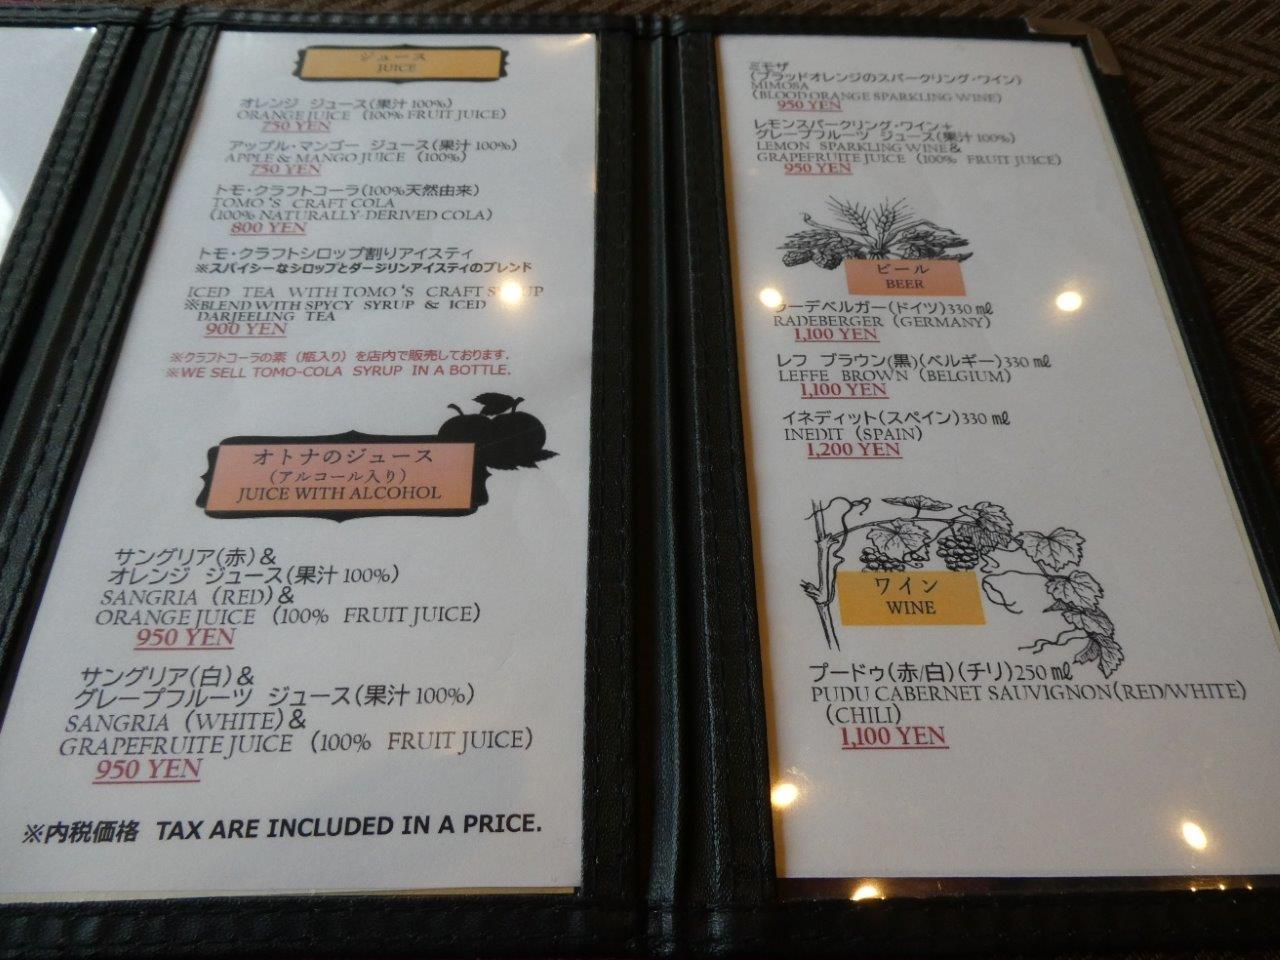 ジュース
JUICE
オレンジ ジュース(果汁100%)
ORANGE JUICE (100% FRUIT JUICE)
750 YEN
アップル・マンゴー ジュース(果汁100%)
APPLE & MANGO JUICE (100%)
750 YEN
トモ・クラフトコーラ(100%天然由来)
TOMO'S CRAFT COLA
(100% NATURALLY-DERIVED COLA)
800 YEN
トモ・クラフトシロップ割りアイスティ
※スパイシーなシロップとダージリンアイスティのブレンド
ICED TEA WITH TOMO'S CRAFT SYRUP
※BLEND WITH SPYCY SYRUP & ICED
DARJEELING TEA
900 YEN
※クラフトコーラの素(瓶入り)を店内で販売しております.
※WE SELL TOMO-COLA SYRUP IN A BOTTLE.
オトナのジュース
(アルコール入り)
JUICE WITH ALCOHOL
サングリア(赤)&
オレンジ ジュース(果汁100%)
SANGRIA (RED)&
ORANGE JUICE (100% FRUIT JUICE)
950 YEN
サングリア(白)&
グレープフルーツ ジュース(果汁100%)
SANGRIA (WHITE)&
GRAPEFRUITE JUICE (100% FRUIT JUICE)
950 YEN
※内税価格 TAX ARE INCLUDED IN A PRICE.
ミモザ
(ブラッドオレンジのスパークリング・ワイン)
MIMOSA
(BLOOD ORANGE SPARKLING WINE)
950 YEN
レモンスパークリング・ワイン+
グレープフルーツ ジュース(果汁100%)
LEMON SPARKLING WINE&
GRAPEFRUITE JUICE (100% FRUIT JUICE)
950 YEN
ビール
BEER
ラーデベルガー(ドイツ)330㎖
RADEBERGER (GERMANY)
1,100 YEN
レフ ブラウン(黒)(ベルギー)330㎖
LEFFE BROWN (BELGIUM)
1,100 YEN
イネディット(スペイン)330㎖
INEDIT (SPAIN)
1,200 YEN
ワイン
WINE
プードゥ(赤/白)(チリ)250㎖
PUDU CABERNET SAUVIGNON(RED/WHITE)
(CHILI)
1,100 YEN